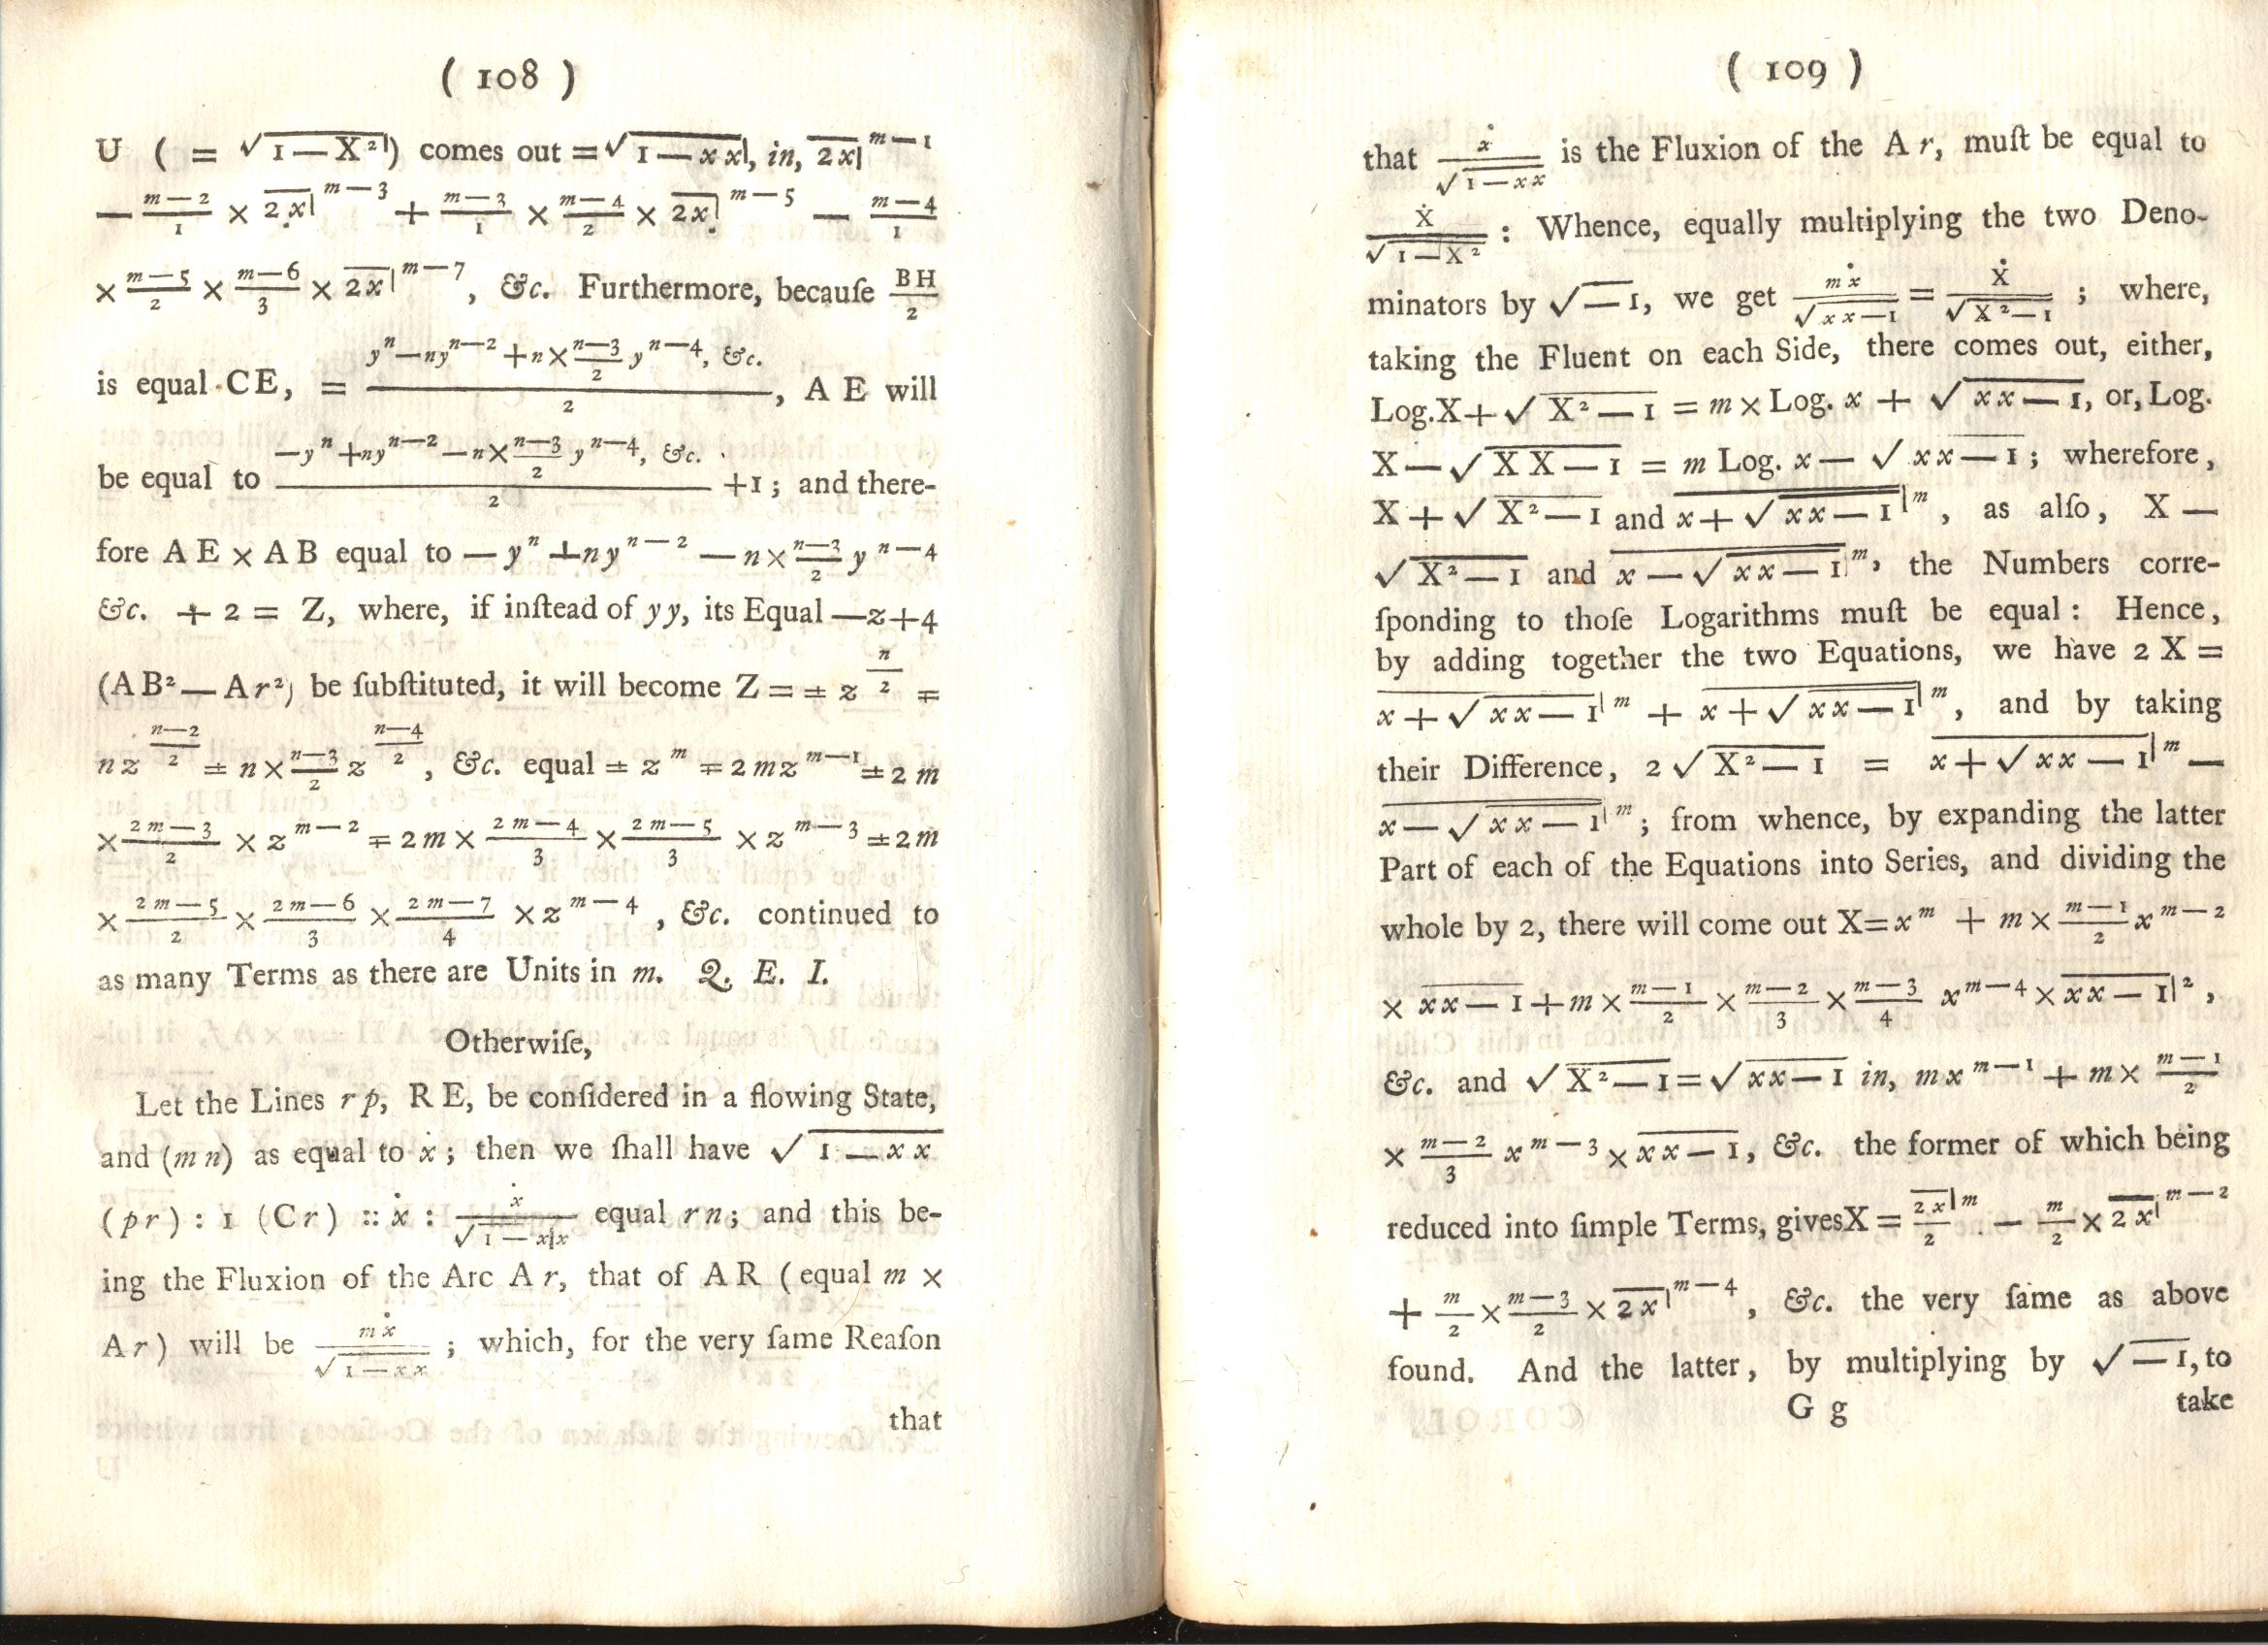 ( 108 )
U ( = √1—X²|) comes out = √1—xx|, in, 2x|^{m—1}
— m—2/1 × 2x|^{m—3} + m—3/1 × m—4/2 × 2x|^{m—5} — m—4/1
× m—5/2 × m—6/3 × 2x|^{m—7}, &c. Furthermore, becauſe BH/2
is equal CE, = y^n—ny^{n—2}+n×n—3/2 y^{n—4}, &c./2, A E will
be equal to —y^n+ny^{n—2}—n×n—3/2 y^{n—4}, &c./2 +1; and there-
fore A E × A B equal to — y^n +ny^{n—2} — n×n—3/2 y^{n—4}
&c. + 2 = Z, where, if inſtead of yy, its Equal —z+4
(AB²—Ar²) be ſubſtituted, it will become Z = ± z^{n/2} ∓
nz^{n—2/2} ± n×n—3/2 z^{n—4/2}, &c. equal ± z^m ∓ 2mz^{m—1} ± 2m
× 2m—3/2 × z^{m—2} ∓ 2m × 2m—4/3 × 2m—5/3 × z^{m—3} ± 2m
× 2m—5/2 × 2m—6/3 × 2m—7/4 × z^{m—4}, &c. continued to
as many Terms as there are Units in m. Q. E. I.
Otherwiſe,
Let the Lines rp, R E, be conſidered in a flowing State,
and (mn) as equal to ẋ; then we ſhall have √1—xx
(pr) : 1 (Cr) :: ẋ : ẋ/√1—xx equal rn; and this be-
ing the Fluxion of the Arc A r, that of A R (equal m ×
Ar) will be mẋ/√1—xx; which, for the very ſame Reaſon
that
( 109 )
that ẋ/√1—xx is the Fluxion of the A r, muſt be equal to
Ẋ/√1—X² : Whence, equally multiplying the two Deno-
minators by √—1, we get mẋ/√xx—1 = Ẋ/√X²—1 ; where,
taking the Fluent on each Side, there comes out, either,
Log.X+√X²—1 = m × Log. x + √xx—1, or, Log.
X—√XX—1 = m Log. x— √xx—1; wherefore,
X+√X²—1 and x+√xx—1|^m, as alſo, X —
√X²—1 and x—√xx—1|^m, the Numbers corre-
ſponding to thoſe Logarithms muſt be equal: Hence,
by adding together the two Equations, we have 2 X =
x+√xx—1|^m + x+√xx—1|^m, and by taking
their Difference, 2√X²—1 = x+√xx—1|^m —
x—√xx—1|^m; from whence, by expanding the latter
Part of each of the Equations into Series, and dividing the
whole by 2, there will come out X=x^m + m × m—1/2 x^{m—2}
× xx—1+m × m—1/2 × m—2/3 × m—3/4 x^{m—4} × xx—1|²,
&c. and √X²—1=√xx—1 in, mx^{m—1} + m × m—1/2
× m—2/3 x^{m—3} × xx—1, &c. the former of which being
reduced into ſimple Terms, gives X = 2x|^m/2 — m/2 × 2x|^{m—2}
+ m/2 × m—3/2 × 2x|^{m—4}, &c. the very ſame as above
found. And the latter, by multiplying by √—1, to
G g take